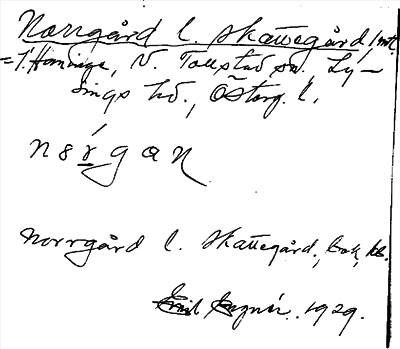 Norrgård l. Skattegård, mtl
= 1. Hanninge, V. Tollstad sn. Ly-
sings hd., Österg. l.
nórgan
Norrgård l. Skattegård, bok, kb.
Emil 1929.